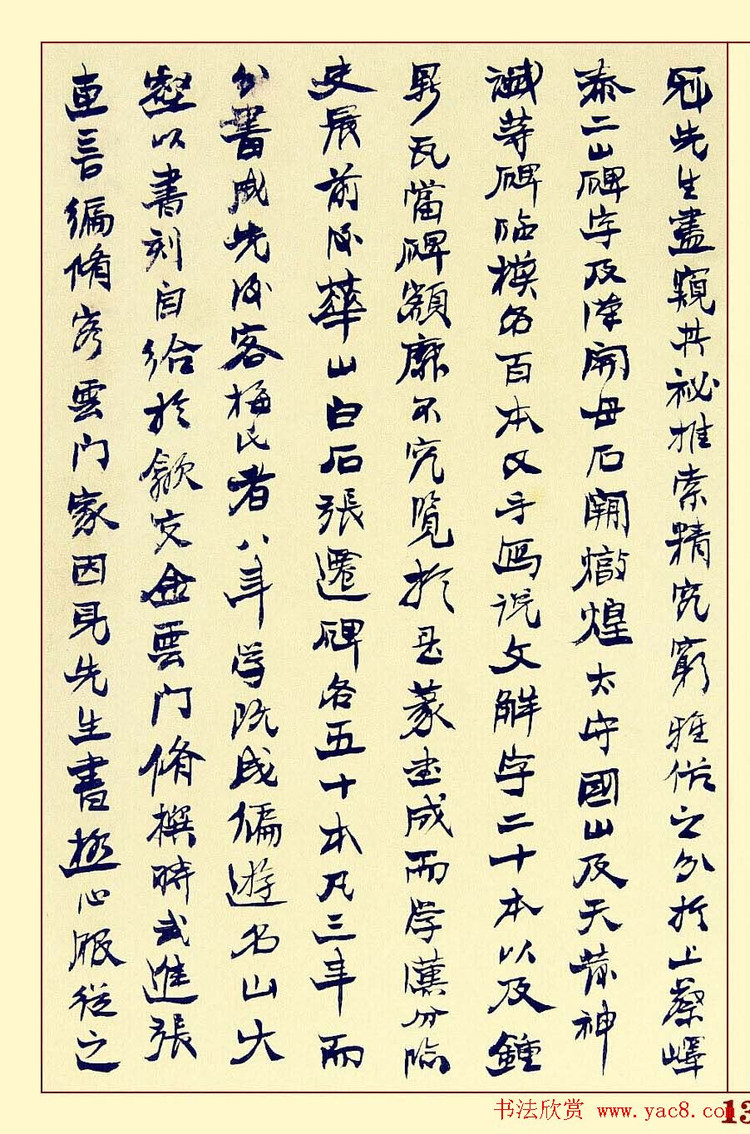 冠先生盡窺其祕推索精究窮雅俗之分於上蔡嶧
泰二山碑字及漢開母石闕燉煌太守國山及天發神
讖等碑臨模各百本又手寫説文解字二十本以及鍾
鼎瓦當碑額靡不究覽於是篆書成而学漢分臨
史晨前後華山白石張遷碑各五十本凡三年而
分書成先後客梅氏者八年学既成徧遊名山大
壑以書刻自給於歙交金雲門脩撰時武進張
言編脩客雲門家因見先生書極心服從之
书法欣赏 www.yac8.com